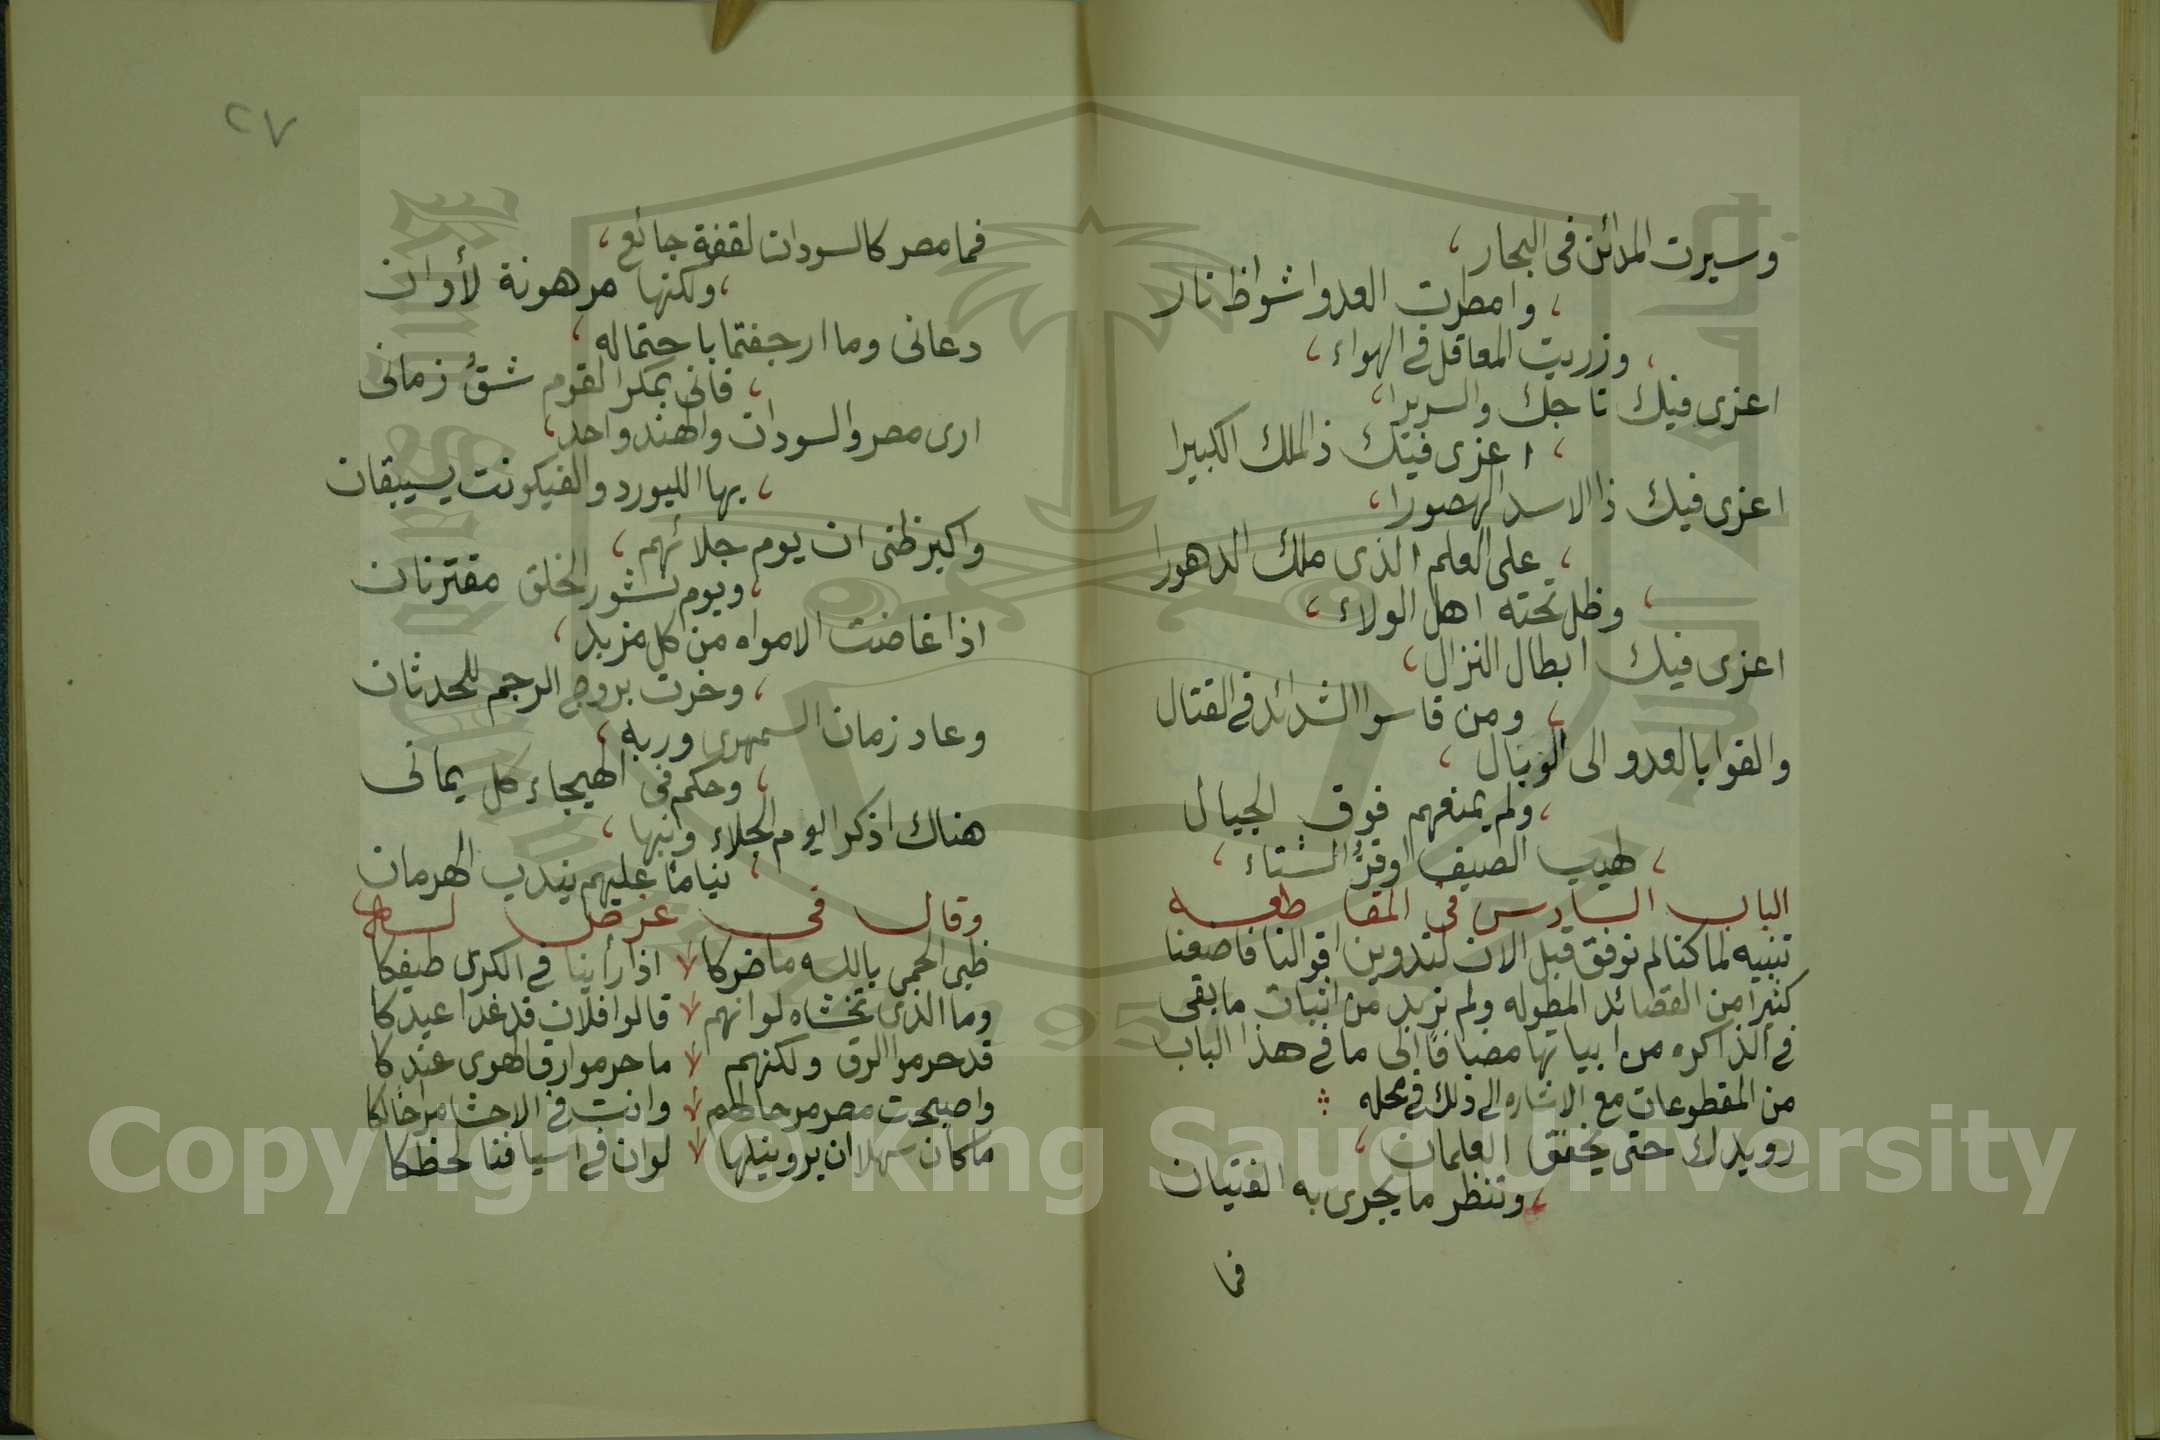 وسيرت المدائن فى البحار ،
، وامطرت العدوا شواظ نار
، وزريت المعاقل فى الهواء ،
اعزى فيك تاجك والسريرا ،
، اعزى فيك ذالملك الكبيرا
اعزى فيك ذا الاسد الهصورا ،
، على العلم الذى ملك الدهورا
، وظل تحته اهل الولاء ،
اعزى فيك ابطال النزال ،
، ومن قاسوا الشدائد فى القتال
والقوا بالعدو الى الوبال ،
، ولم يمنعهم فوق الجبال
، لهيب الصيف اوقرُّ الشتاء ،
الباب السادس فى المقاطعه
تنبيه لما كنا لم نوفق قبل الان لتدوين اقوالنا فاضعنا
كثيرا من القصائد المطوله ولم نر بد من اثبات ما بقى
فى الذاكره من ابياتها مضافًا الى ما فى هذا الباب
من المقطوعات مع الاشاره الى ذلك فى محله
رويدك حتى يخفق العلمان ،
، وتنظر ما يجرى به الفتيان
فما
٢٧
فما مصر كالسودان لقفة جائع ،
، ولكنها مرهونة لأوان
دعانى وما ارجفتما باحتماله ،
، فانى بمكر القوم شقُّ زمانى
ارى مصر والسودان والهند واحد ،
، بها الليورد والفيكونت يستبقان
واكبر ظنى ان يوم جلائهم ،
، ويوم نشور الخلق مقترنان
اذا غاضت الامواه من كل مزبد ،
، وخرت بروج الرجم للحدثان
وعاد زمان السمهرى وربه ،
، وحكم فى الهيجاء كل يمانى
هناك اذكرا يوم الجلاء ونبها ،
، نيامًا عليهم يندب الهرمان
وقال فى غرض له
ظبى الحمى بالله ما ضركا اذا رأينا فى الكرى طيفكا
وما الذى تخشاه لو انهم قالوا فلان قد غدا عبدكا
قد حرموا الرق ولكنهم ما حرموا رق الهوى عندكا
واصبحت مصر مرحا لهم وانت فى الاحشا مراحًا لكا
ما كان سهلا ان يروا نيلها لو ان فى اسيافنا لحظكا
Copyright © King Saud University